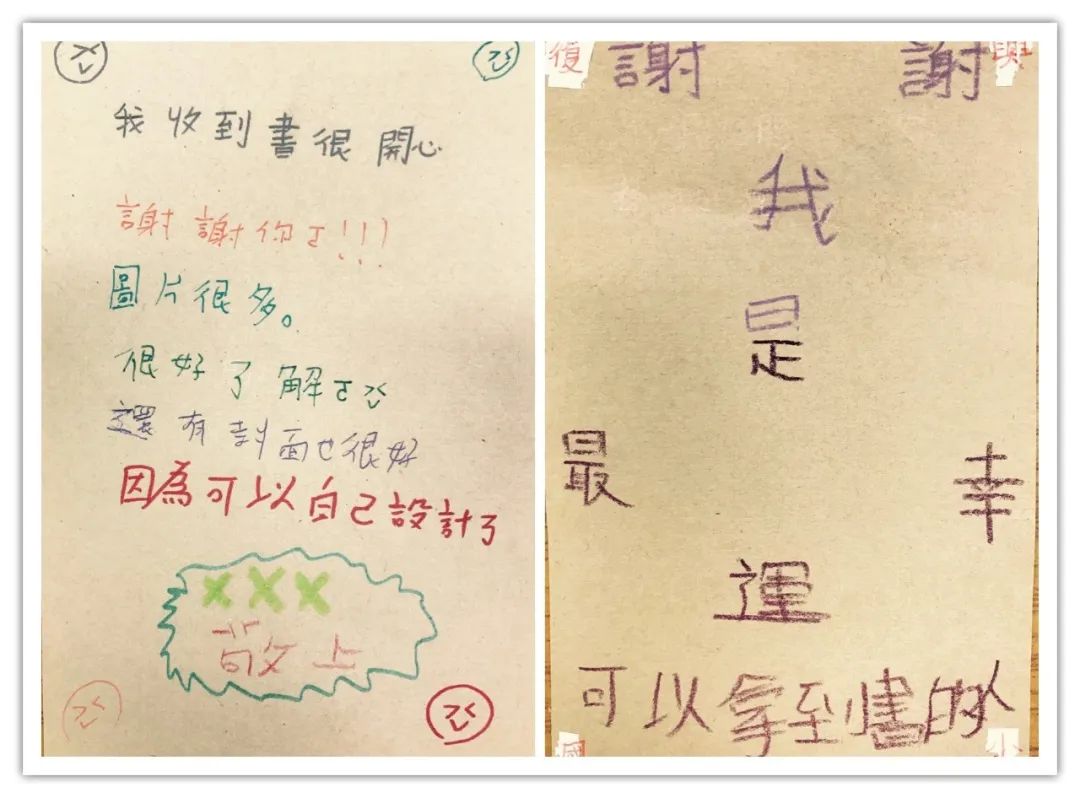 我收到書很開心
謝謝你ㄛ!!!
圖片很多。
很好了解ㄛ
還有封面也很好
因為可以自己設計了
XXX
敬上
復 興
謝 謝
我
是
最 幸
運
可以拿到書的人
國 小